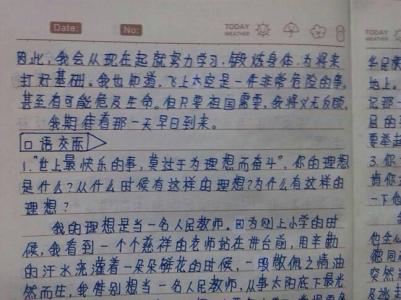 Date: No: TODAY WEATHER
因此,我会从现在起就努力学习,锻炼身体,为将来
打好基础。我也知道,飞上太空是一件非常危险的事,
甚至有可能危及生命。但只要祖国需要,我将义无反顾。
我期待着那一天早日到来。
口语交际
1.“世上最快乐的事,莫过于为理想而奋斗”。你的理想
是什么?从什么时候有这样的理想?为什么有这样的
理想?
我的理想是当一名人民教师。因为刚上小学的时
候,我看到一个个慈祥的老师站在讲台前,用辛勤
的汗水浇灌着一朵朵鲜花的时候,一股敬佩之情油
然而生,我特别想当一名人民教师,从事太阳底下最光
TODAY
WEATHER
地上。
记那一
3.你